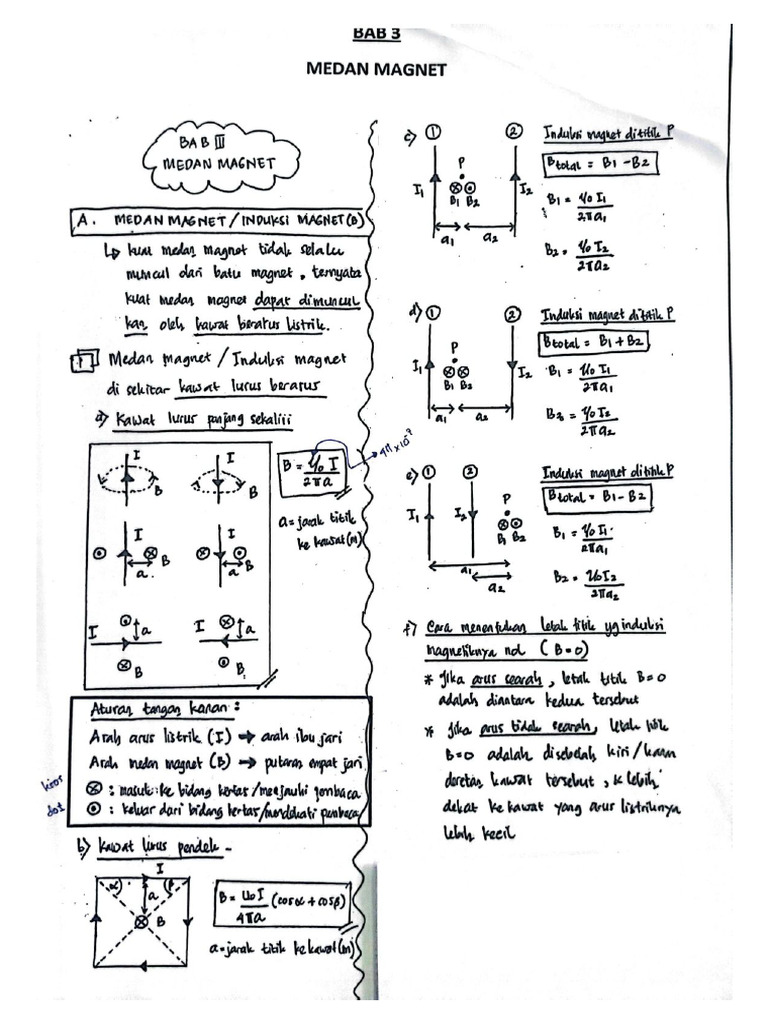 BAB 3
MEDAN MAGNET
BAB III
MEDAN MAGNET
A. MEDAN MAGNET / INDUKSI MAGNET (B)
↳ kuat medan magnet tidak selalu
muncul dari batu magnet, ternyata
kuat medan magnet dapat dimuncul
kan oleh kawat berarus listrik.
1 Medan magnet / Induksi magnet
di sekitar kawat lurus berarus
a) Kawat lurus panjang sekaliii
I B I B
B = μ₀ I / 2πa
4π × 10⁻⁷
a = jarak titik
ke kawat (m)
I B a
I B a
I a B
I a B
Aturan tangan kanan :
Arah arus listrik (I) → arah ibu jari
Arah medan magnet (B) → putaran empat jari
⊗ : masuk ke bidang kertas / menjauhi pembaca
⊙ : keluar dari bidang kertas / mendekati pembaca
dot
b) Kawat lurus pendek -
I
α β
a
B
B = μ₀ I / 4πa (cos α + cos β)
a = jarak titik ke kawat (m)
c) 1 2
I₁ P I₂
⊗ ⊙
B₁ B₂
a₁ a₂
Induksi magnet dititik P
Btotal = B₁ - B₂
B₁ = μ₀ I₁ / 2πa₁
B₂ = μ₀ I₂ / 2πa₂
d) 1 2
I₁ P I₂
⊗ ⊗
B₁ B₂
a₁ a₂
Induksi magnet dititik P
Btotal = B₁ + B₂
B₁ = μ₀ I₁ / 2πa₁
B₂ = μ₀ I₂ / 2πa₂
e) 1 2
I₁ I₂ P
⊗ ⊙
B₁ B₂
a₁
a₂
Induksi magnet dititik P
Btotal = B₁ - B₂
B₁ = μ₀ I₁ / 2πa₁
B₂ = μ₀ I₂ / 2πa₂
f) Cara menentukan letak titik yg induksi
magnetiknya nol (B = 0)
* Jika arus searah, letak titik B = 0
adalah diantara kedua tersebut
* Jika arus tidak searah, letak titik
B = 0 adalah disebelah kiri / kanan
deretan kawat tersebut, & lebih
dekat ke kawat yang arus listriknya
lebih kecil